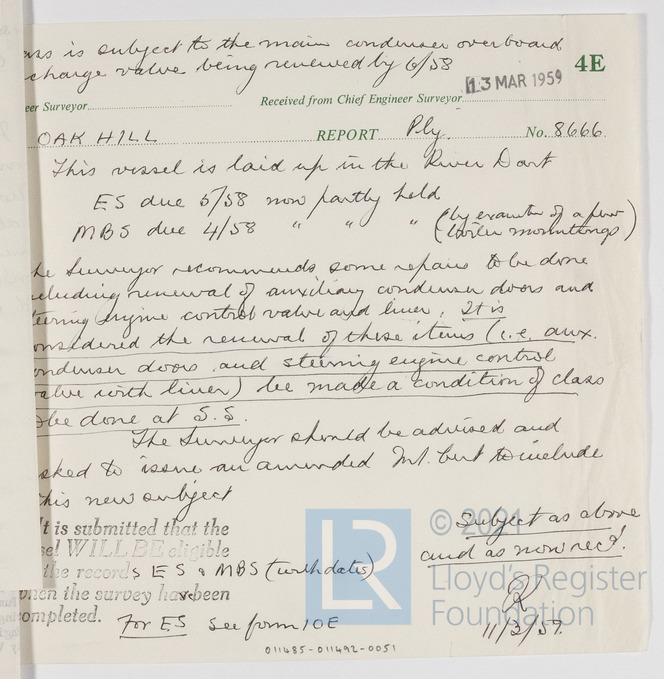 ass is subject to the main condenser overboard
charge valve being renewed by 6/58
4E
13 MAR 1959
eer Surveyor Received from Chief Engineer Surveyor
OAK HILL REPORT Ply. No. 8666.
This vessel is laid up in the River Dart
ES due 5/58 now partly held
MBS due 4/58 " " " (by examtn of a few
boiler mountings)
he Surveyor recommends some repairs to be done
cluding renewal of auxiliary condenser doors and
teering engine control valve and liner. It is
onsidered the renewal of these items (i.e. aux.
ondenser doors and steering engine control
valve with liner) be made a condition of class
to be done at S.S.
The Surveyor should be advised and
sked to issue an amended Int. Cert to include
this new subject
It is submitted that the
sel WILL BE eligible
the records ES & MBS (with dates)
when the survey has been
completed.
For ES see form 10E
Subject as above
and as now recd.
R
11/3/59.
© 2021
LR
Lloyd's Register
Foundation
011485-011492-0051